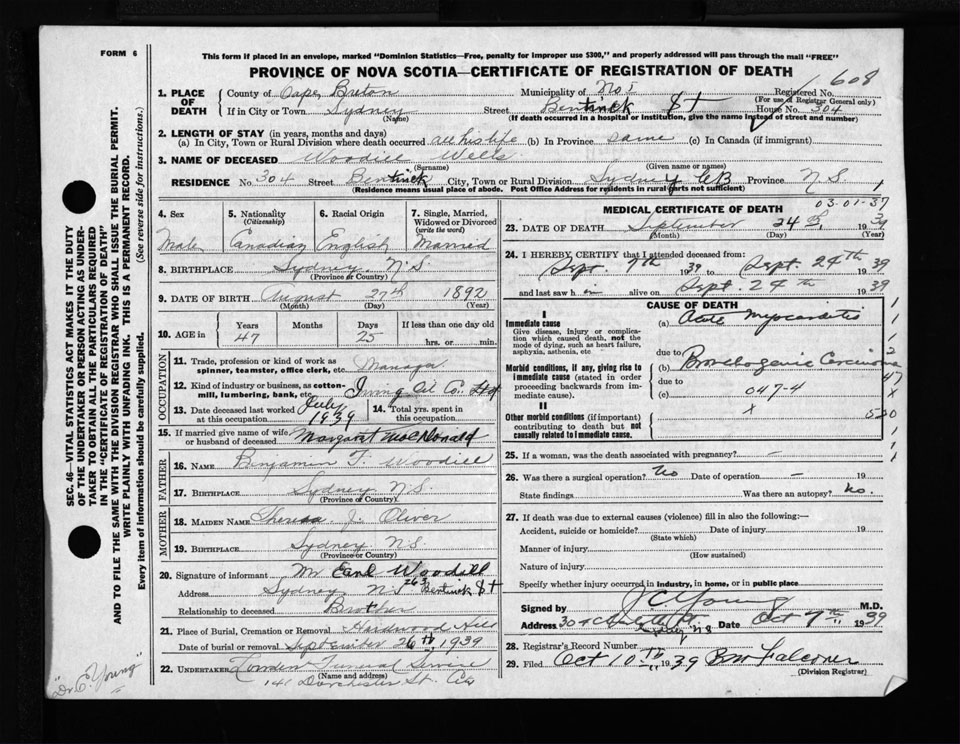 FORM 6
This form if placed in an envelope, marked "Dominion Statistics—Free, penalty for improper use $300," and properly addressed will pass through the mail "FREE"
PROVINCE OF NOVA SCOTIA—CERTIFICATE OF REGISTRATION OF DEATH
608
1. PLACE OF DEATH
County of Cape Breton Municipality of No 1 Registered No.
(For use of Registrar General only)
If in City or Town Sydney Street Bentinck St House No. 304
(Name) (If death occurred in a hospital or institution, give the name instead of street and number)
2. LENGTH OF STAY (in years, months and days)
(a) In City, Town or Rural Division where death occurred all his life (b) In Province same (c) In Canada (if immigrant)
3. NAME OF DECEASED Woodill Wells
(Surname) (Given name or names)
RESIDENCE No. 304 Street Bentinck City, Town or Rural Division Sydney CB Province N.S. 1
(Residence means usual place of abode. Post Office Address for residents in rural parts not sufficient)
4. Sex
Male
5. Nationality
(Citizenship)
Canadian
6. Racial Origin
English
7. Single, Married, Widowed or Divorced
(write the word)
Married
8. BIRTHPLACE Sydney. N.S.
(Province or Country)
9. DATE OF BIRTH August 27th 1892
(Month) (Day) (Year)
10. AGE in
Years Months Days If less than one day
47 25 hrs. or min.
OCCUPATION
11. Trade, profession or kind of work as spinner, teamster, office clerk, etc. Manager
12. Kind of industry or business, as cotton-mill, lumbering, bank, etc. Irving Oil Co. Ltd
13. Date deceased last worked at this occupation July 1939
14. Total yrs. spent in this occupation
15. If married give name of wife or husband of deceased Margaret MacDonald
FATHER
16. NAME Benjamin F. Woodill
17. BIRTHPLACE Sydney N.S.
(Province or Country)
MOTHER
18. MAIDEN NAME Theresa J. Oliver
19. BIRTHPLACE Sydney N.S.
(Province or Country)
20. Signature of informant Mr Earl Woodill
Address Sydney NS 263 Bentinck St
Relationship to deceased Brother
21. Place of Burial, Cremation or Removal Hardwood Hill
Date of burial or removal September 26th 1939
22. UNDERTAKER Funeral Service
(Name and address)
141 Dorchester St. City
MEDICAL CERTIFICATE OF DEATH
03-01-37
23. DATE OF DEATH September 24th, 1939
(Month) (Day) (Year)
24. I HEREBY CERTIFY that I attended deceased from:
Sept. 7th 1939 to Sept. 24th 1939
and last saw him alive on Sept. 24th 1939
CAUSE OF DEATH
I
Immediate cause
Give disease, injury or complication which caused death, not the mode of dying, such as heart failure, asphyxia, asthenia, etc
(a) Acute myocarditis
due to
Morbid conditions, if any, giving rise to immediate cause (stated in order proceeding backwards from immediate cause).
(b) Bronchogenic Carcinoma
due to
(c) 047-4
II
Other morbid conditions (if important) contributing to death but not causally related to immediate cause.
x
25. If a woman, was the death associated with pregnancy? –
26. Was there a surgical operation? No Date of operation – 19
State findings Was there an autopsy? No.
27. If death was due to external causes (violence) fill in also the following:—
Accident, suicide or homicide? Date of injury 19
(State which)
Manner of injury
(How sustained)
Nature of injury
Specify whether injury occurred in industry, in home, or in public place
Signed by J C Young M.D.
Address 304 Sydney NS Date Oct 7th 1939
28. Registrar's Record Number
29. Filed Oct 10th 1939 BM Falconer
(Division Registrar)
SEC. 46—VITAL STATISTICS ACT MAKES IT THE DUTY OF THE UNDERTAKER OR PERSON ACTING AS UNDERTAKER TO OBTAIN ALL THE PARTICULARS REQUIRED IN THE "CERTIFICATE OF REGISTRATION OF DEATH"
AND TO FILE THE SAME WITH THE DIVISION REGISTRAR WHO SHALL ISSUE THE BURIAL PERMIT.
WRITE PLAINLY WITH UNFADING INK. THIS IS A PERMANENT RECORD.
Every item of information should be carefully supplied. (See reverse side for instructions.)
"Dr C. Young"